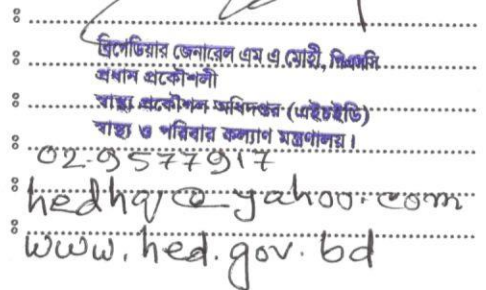 ব্রিগেডিয়ার জেনারেল এম এ মোহী, পিএসসি
প্রধান প্রকৌশলী
স্বাস্থ্য প্রকৌশল অধিদপ্তর (এইচইডি)
স্বাস্থ্য ও পরিবার কল্যাণ মন্ত্রণালয়।
02-9577917
hedhq@yahoo.com
www.hed.gov.bd